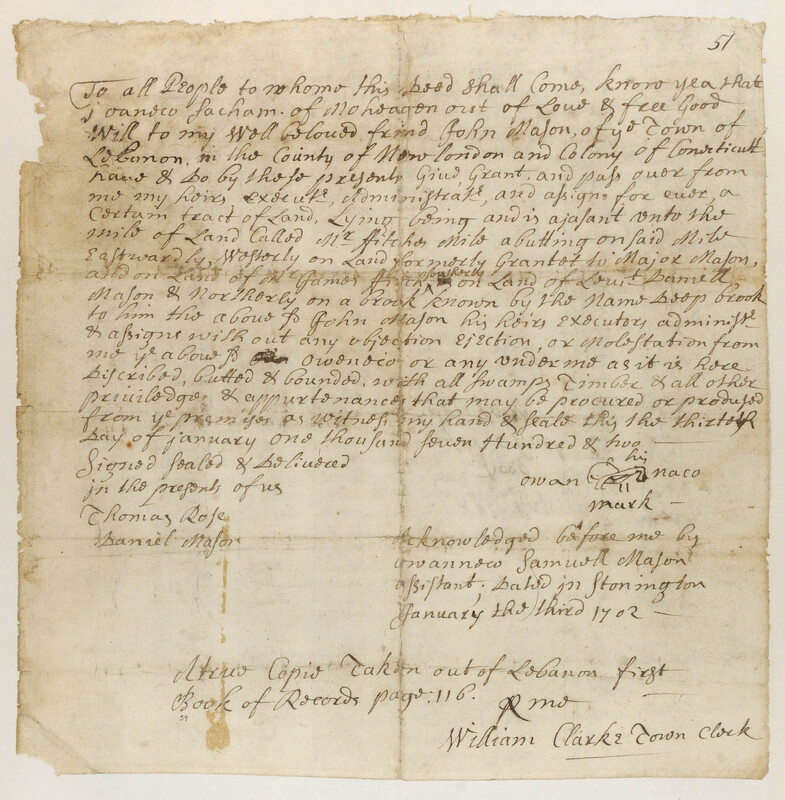 51
To all People to whome this Deed shall Come, know yea that
j oaneco Sacham. of Moheagen out of Love & free Good
Will to my Well beloved frind John Mason, of ye Town of
Lebanon, in the County of New london and Colony of Conecticutt
have & Do by these presents Give Grant, and pass over from
me my heirs, Execute, Administrate, and assigns for ever, a
Certain tract of Land, Lying being and is ajasant unto the
mile of Land Called Mr ffitches Mile abutting on said Mile
Eastwardly, Westerly on Land formerly Granted to Major Mason,
and on Land of Mr James ffitch southerly on Land of Leut Daniell
Mason & Northerly on a brook known by the Name Deep brook
to him the above sd John Mason his heirs Executors administe
& assigns with out any objection Ejection, or Molestation from
me ye above sd Oweneco or any under me as it is here
Discribed, butted & bounded, with all Swamps Timber & all other
priviledges & appurtenances that may be procured or prodused
from ye premises as witness my hand & seale this the thirteth
Day of january one thousand seven Hundred & two
Signed Sealed & Delivered
in the presents of us
his
owan naco
mark
Thomas Rose
Daniel Mason
Acknowledged before me by
owanneco Samuell Mason
assistant, Dated in Stonington
January the third 1702
A true Copie Taken out of Lebanon first
Book of Records page: 116.
me
59
William Clarke Town Clerk